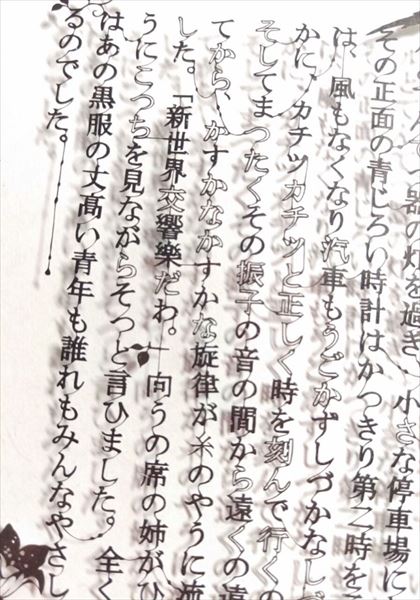 つ器の灯を過ぎ、小さな停車場に
その正面の青じろい時計はかつきり第二時を
は、風もなくなり汽車もうごかずしづかなし
かに、カチツカチツと正しく時を刻んで行くの
そしてまつたくその振子の音の間から遠くの遠
てから、かすかなかすかな旋律が糸のやうに流
した。「新世界交響樂だわ。」向うの席の姉がひ
うにこつちを見ながらそつと言ひました。全く
はあの黒服の丈髙い青年も誰れもみんなやさし
るのでした。